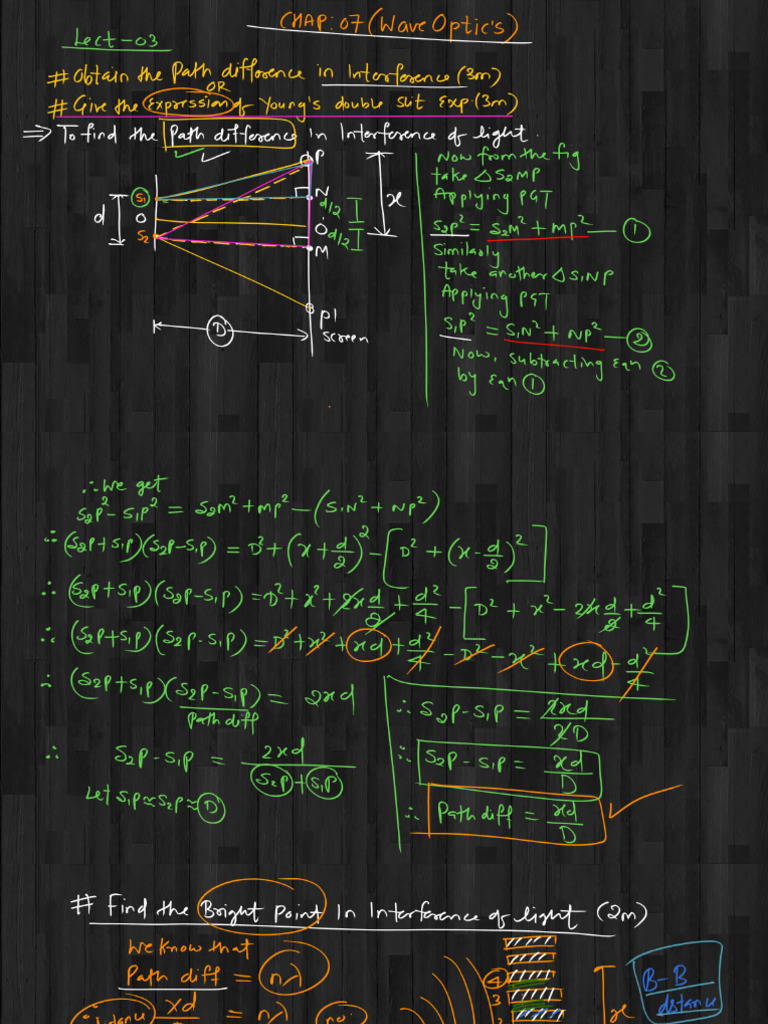 CHAP: 07 (Wave Optic's)
Lect-03
# Obtain the Path difference in Interference (3m)
OR
# Give the Expression of Young's double slit Exp (3m)
⇒ To find the Path difference in Interference of light.
P
S1
N
d/2
x
d
O
O
d/2
S2
M
P1
D
screen
Now from the fig
take △S2MP
Applying PGT
S2P² = S2M² + MP² — ①
Similarly
take another △S1NP
Applying PGT
S1P² = S1N² + NP² — ②
Now, subtracting Eqn ②
by Eqn ①
∴ We get
S2P² - S1P² = S2M² + MP² - (S1N² + NP²)
∴ (S2P + S1P)(S2P - S1P) = D² + (x + d/2)² - [D² + (x - d/2)²]
∴ (S2P + S1P)(S2P - S1P) = D² + x² + 2xd/2 + d²/4 - [D² + x² - 2xd/2 + d²/4]
∴ (S2P + S1P)(S2P - S1P) = D² + x² + xd + d²/4 - D² - x² + xd - d²/4
∴ (S2P + S1P)(S2P - S1P) = 2xd
Path diff
∴ S2P - S1P = 2xd/(S2P + S1P)
Let S1P ≈ S2P ≈ D
∴ S2P - S1P = 2xd/2D
∴ S2P - S1P = xd/D
∴ Path diff = xd/D
# Find the Bright Point In Interference of light (2m)
We know that
Path diff = nλ
xd = nλ
4
3
x
B-B
distance